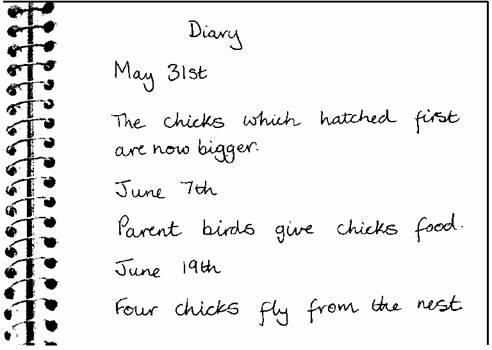 Diary
May 31st
The chicks which hatched first
are now bigger.
June 7th
Parent birds give chicks food.
June 19th
Four chicks fly from the nest